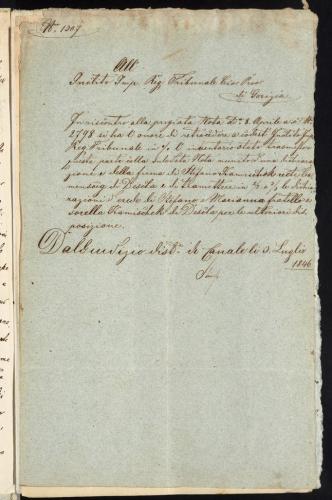 N. 1307
All
Inclito Imp. Reg. Tribunale Civ. Prov.
di Gorizia
In riscontro alla pregiata Nota d.to 8. Aprile a. c. N.
2798 si ha l'onore di retrocedere a codest' Inclito Imp.
Reg. Tribunale in /. l'inventario stato trasmesso
colla Nota munito d'una dichiara-
zione e della firma di Stefano
di Descla e di trametterle in 2/ /. le dichia-
razioni d'erede li Stefano e Marianna fratello e
sorella di Descla per le ulteriori dis-
posizione.
Dal Giudizio dist.e di Canale li 3. Luglio
1846